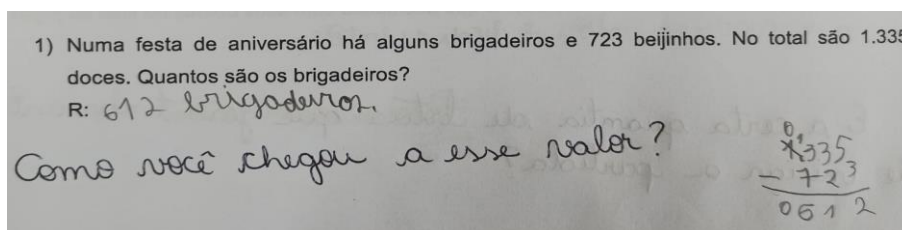 1) Numa festa de aniversário há alguns brigadeiros e 723 beijinhos. No total são 1.335
doces. Quantos são os brigadeiros?
R: 612 brigadeiros.
Como você chegou a esse valor?
0
1.335
- 723
0612